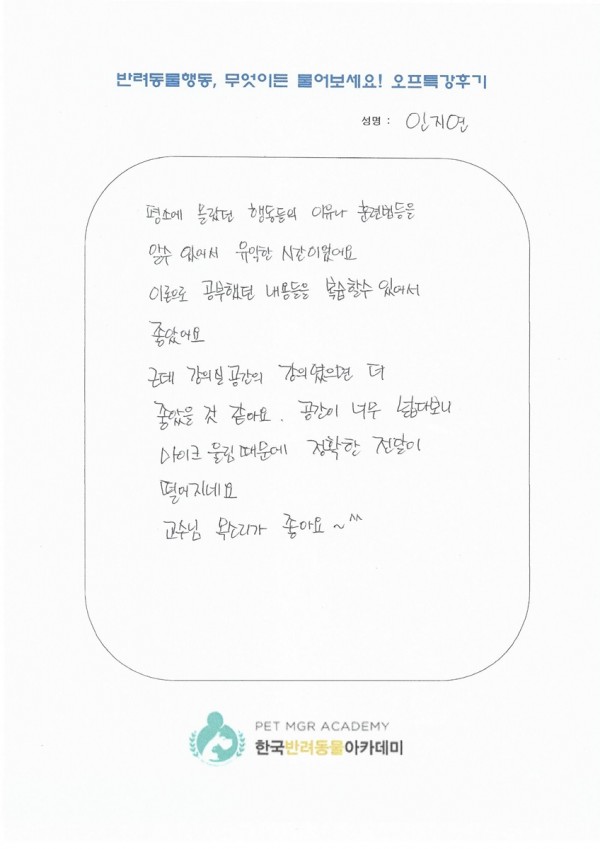 반려동물행동, 무엇이든 물어보세요! 오프특강후기
성명 : 인지연
평소에 몰랐던 행동들의 이유나 훈련법등을
알수 있어서 유익한 시간이었어요
이론으로 공부했던 내용들을 복습할수 있어서
좋았어요
근데 강의실공간의 강의였으면 더
좋았을 것 같아요. 공간이 너무 넓다보니
마이크 울림때문에 정확한 전달이
떨어지네요
교수님 목소리가 좋아요~^^
PET MGR ACADEMY
한국반려동물아카데미